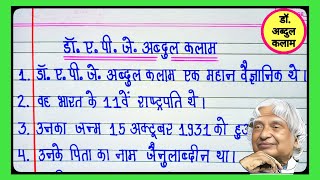 डॉ. ए. पी. जे. अब्दुल कलाम
डॉ. अब्दुल कलाम
1. डॉ. ए. पी. जे. अब्दुल कलाम एक महान वैज्ञानिक थे।
2. वह भारत के 11वें राष्ट्रपति थे।
3. उनका जन्म 15 अक्टूबर 1931 को
4. उनके पिता का नाम जैनुलाब्दीन था।